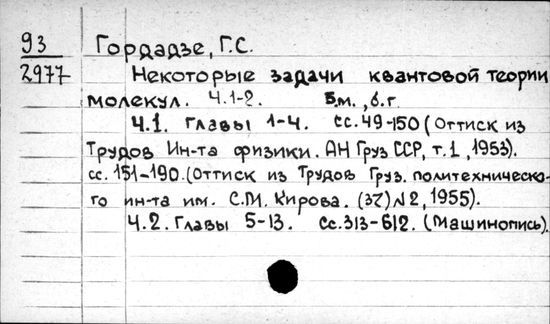 93 Гордадзе, Г.С.
2977 Некоторые задачи квантовой теории
молекул. Ч.1-2. Б.м., б.г
Ч.1. Главы 1-4. сс.49-150 (Оттиск из
Трудов Ин-та физики. АН Груз ССР, т.1, 1953).
сс. 151-190. (Оттиск из Трудов Груз. политехническо-
го ин-та им. С.М. Кирова. (37) №2, 1955).
Ч.2. Главы 5-13. сс.313-612. (Машинопись).